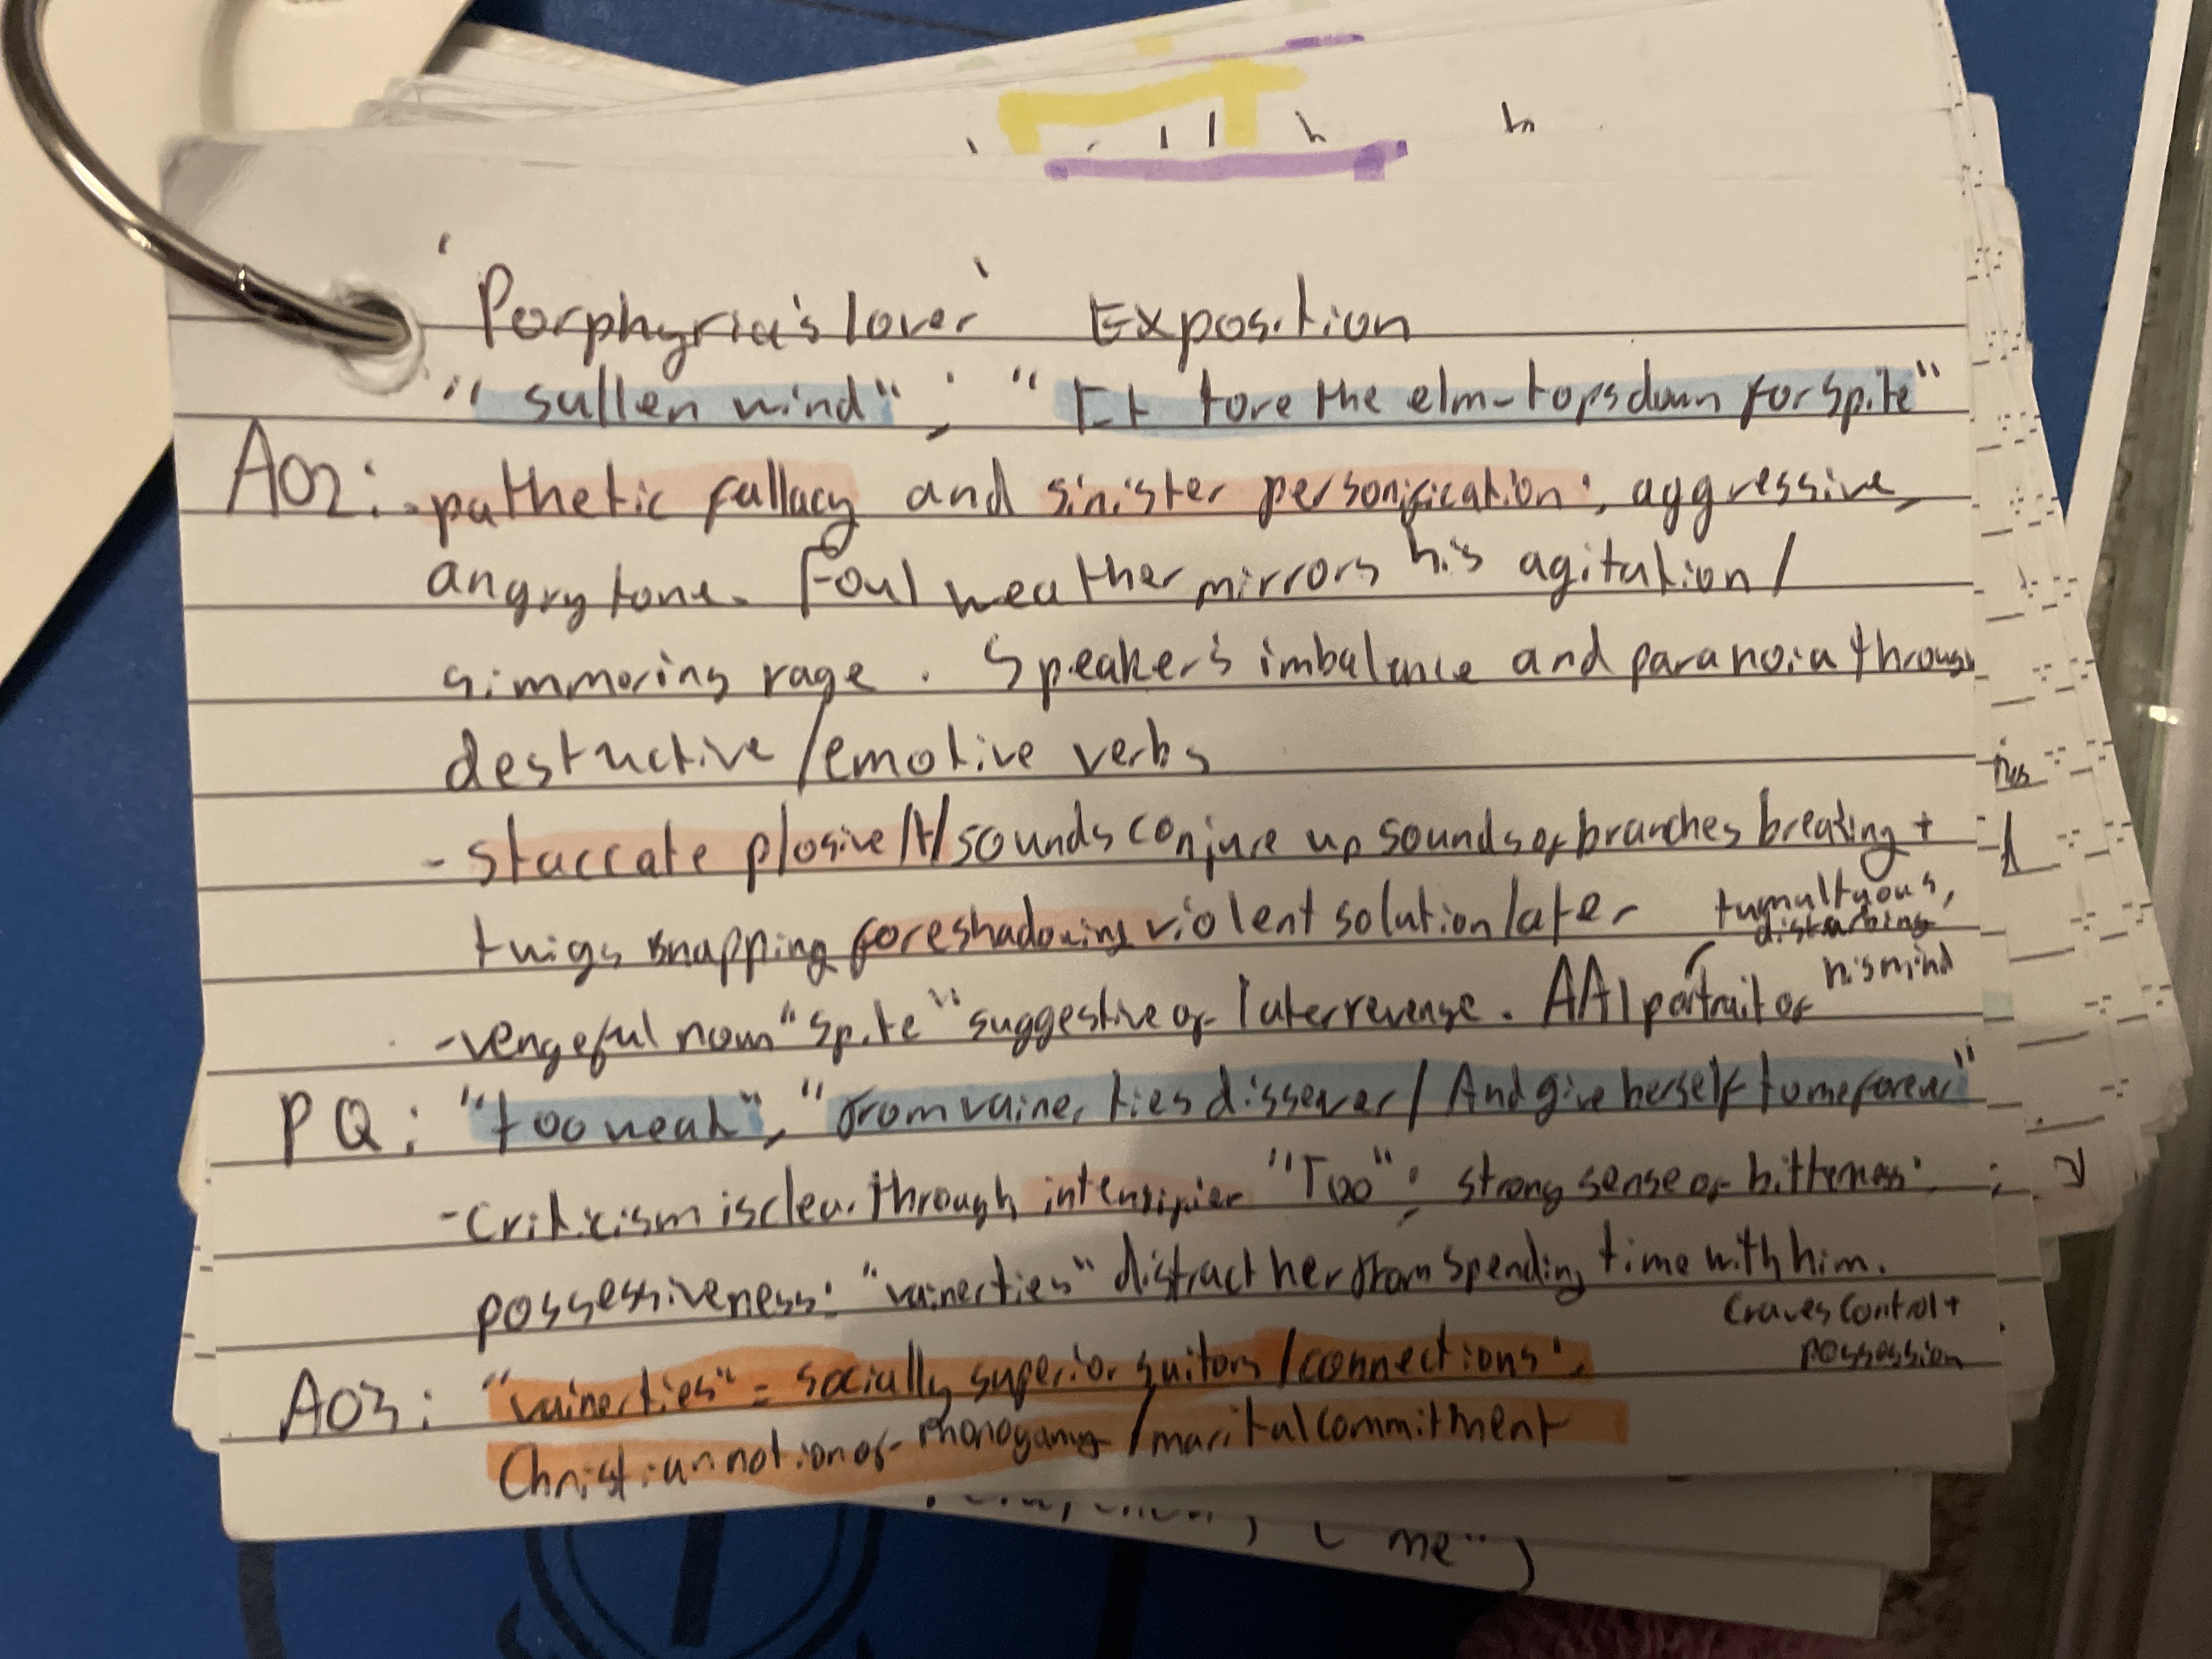 'Porphyria's lover' Exposition
"sullen wind"; "It tore the elm-tops down for spite"
AO2: -pathetic fallacy and sinister personification; aggressive,
angry tone. Foul weather mirrors his agitation/
simmering rage. Speaker's imbalance and paranoia through
destructive/emotive verbs
- staccate plosive /t/ sounds conjure up sounds of branches breaking +
twigs snapping foreshadowing violent solution later
-vengeful noun "spite" suggestive of later revenge. AA1 portrait of
tumultuous,
disturbing
his mind
PQ: "too weak", "from vainer ties dissever/ And give herself to me forever"
-Criticism is clear through intensifier "Too"; strong sense of bitterness;
possessiveness: "vainer ties" distract her from spending time with him.
Craves control +
possession
AO3: "vainer ties" = socially superior suitors/connections;
Christian notion of monogamy/marital commitment
me")